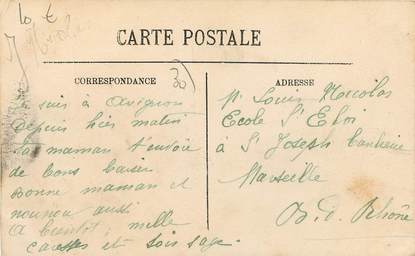 10 €
CARTE POSTALE
CORRESPONDANCE
30
ADRESSE
Je suis à Avignon
depuis hier matin
Ta maman t'envoie
de bons baisers
bonne maman et
nounou aussi
A bientôt, mille
caresses et sois sage.
Mr Louis Nicolas
Ecole St Eloi
à St Joseph
Marseille
B. d. Rhône